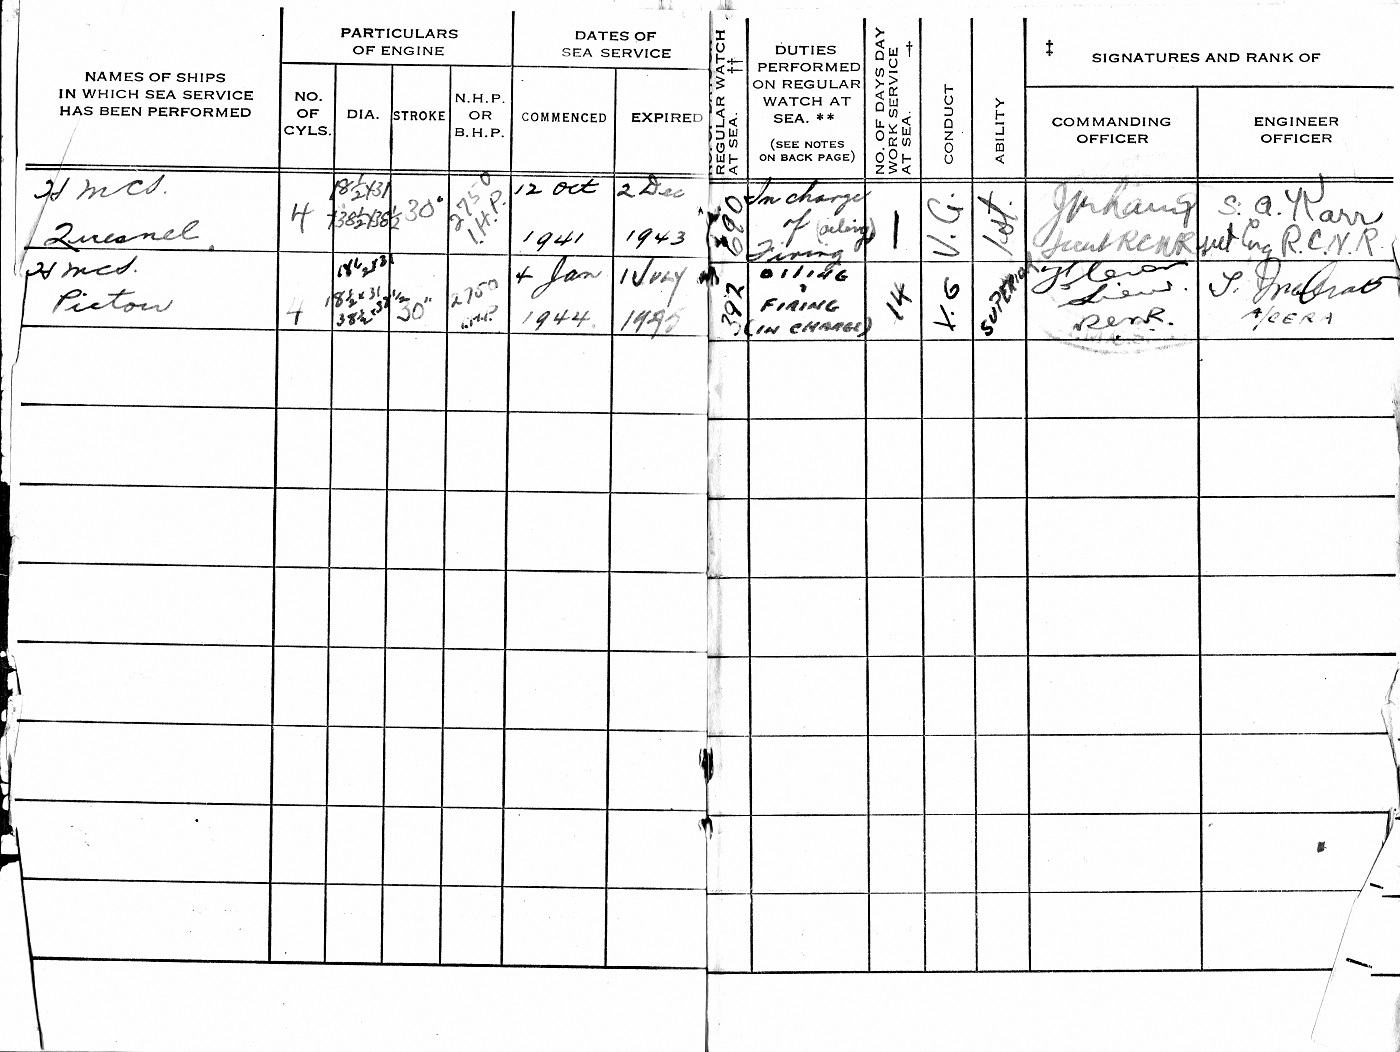 NAMES OF SHIPS
IN WHICH SEA SERVICE
HAS BEEN PERFORMED
PARTICULARS
OF ENGINE
NO.
OF
CYLS.
DIA.
STROKE
N.H.P.
OR
B.H.P.
DATES OF
SEA SERVICE
COMMENCED
EXPIRED
REGULAR WATCH
AT SEA. ††
DUTIES
PERFORMED
ON REGULAR
WATCH AT
SEA. **
(SEE NOTES
ON BACK PAGE)
NO. OF DAYS DAY
WORK SERVICE
AT SEA. †
CONDUCT
ABILITY
‡ SIGNATURES AND RANK OF
COMMANDING
OFFICER
ENGINEER
OFFICER
HMCS.
Quesnel.
4
18½ x 31
38½ x 38½
30"
2750
I.H.P.
12 Oct
1941
2 Dec
1943
690
In charge
of (oiling)
Firing
1
V.G.
1st.
Lieut RCNR
S. A. Karr
R.C.N.R.
HMCS.
Pictou
4
18½ x 31
38½ x 38½
30"
2750
I.H.P.
4 Jan
1944
1 July
1945
392
OILING
&
FIRING
(IN CHARGE)
14
V.G
SUPERIOR
A/CERA